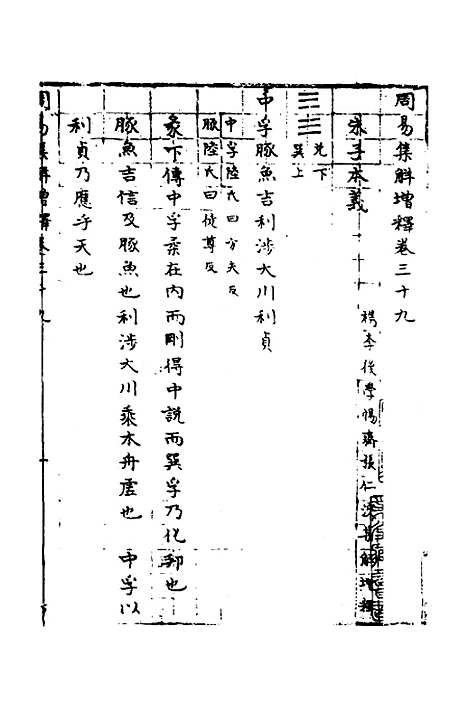 周易集解增釋卷三十九
朱子本義
槜李後學惕齋張仁浹集解增釋
兌下
巽上
中孚豚魚吉利涉大川利貞
中孚陸氏曰方夫反
豚陸氏曰徒尊反
彖下傳中孚柔在內而剛得中說而巽孚乃化邦也
豚魚吉信及豚魚也利涉大川乘木舟虛也 中孚以
利貞乃應乎天也
周易集解增釋卷三十九